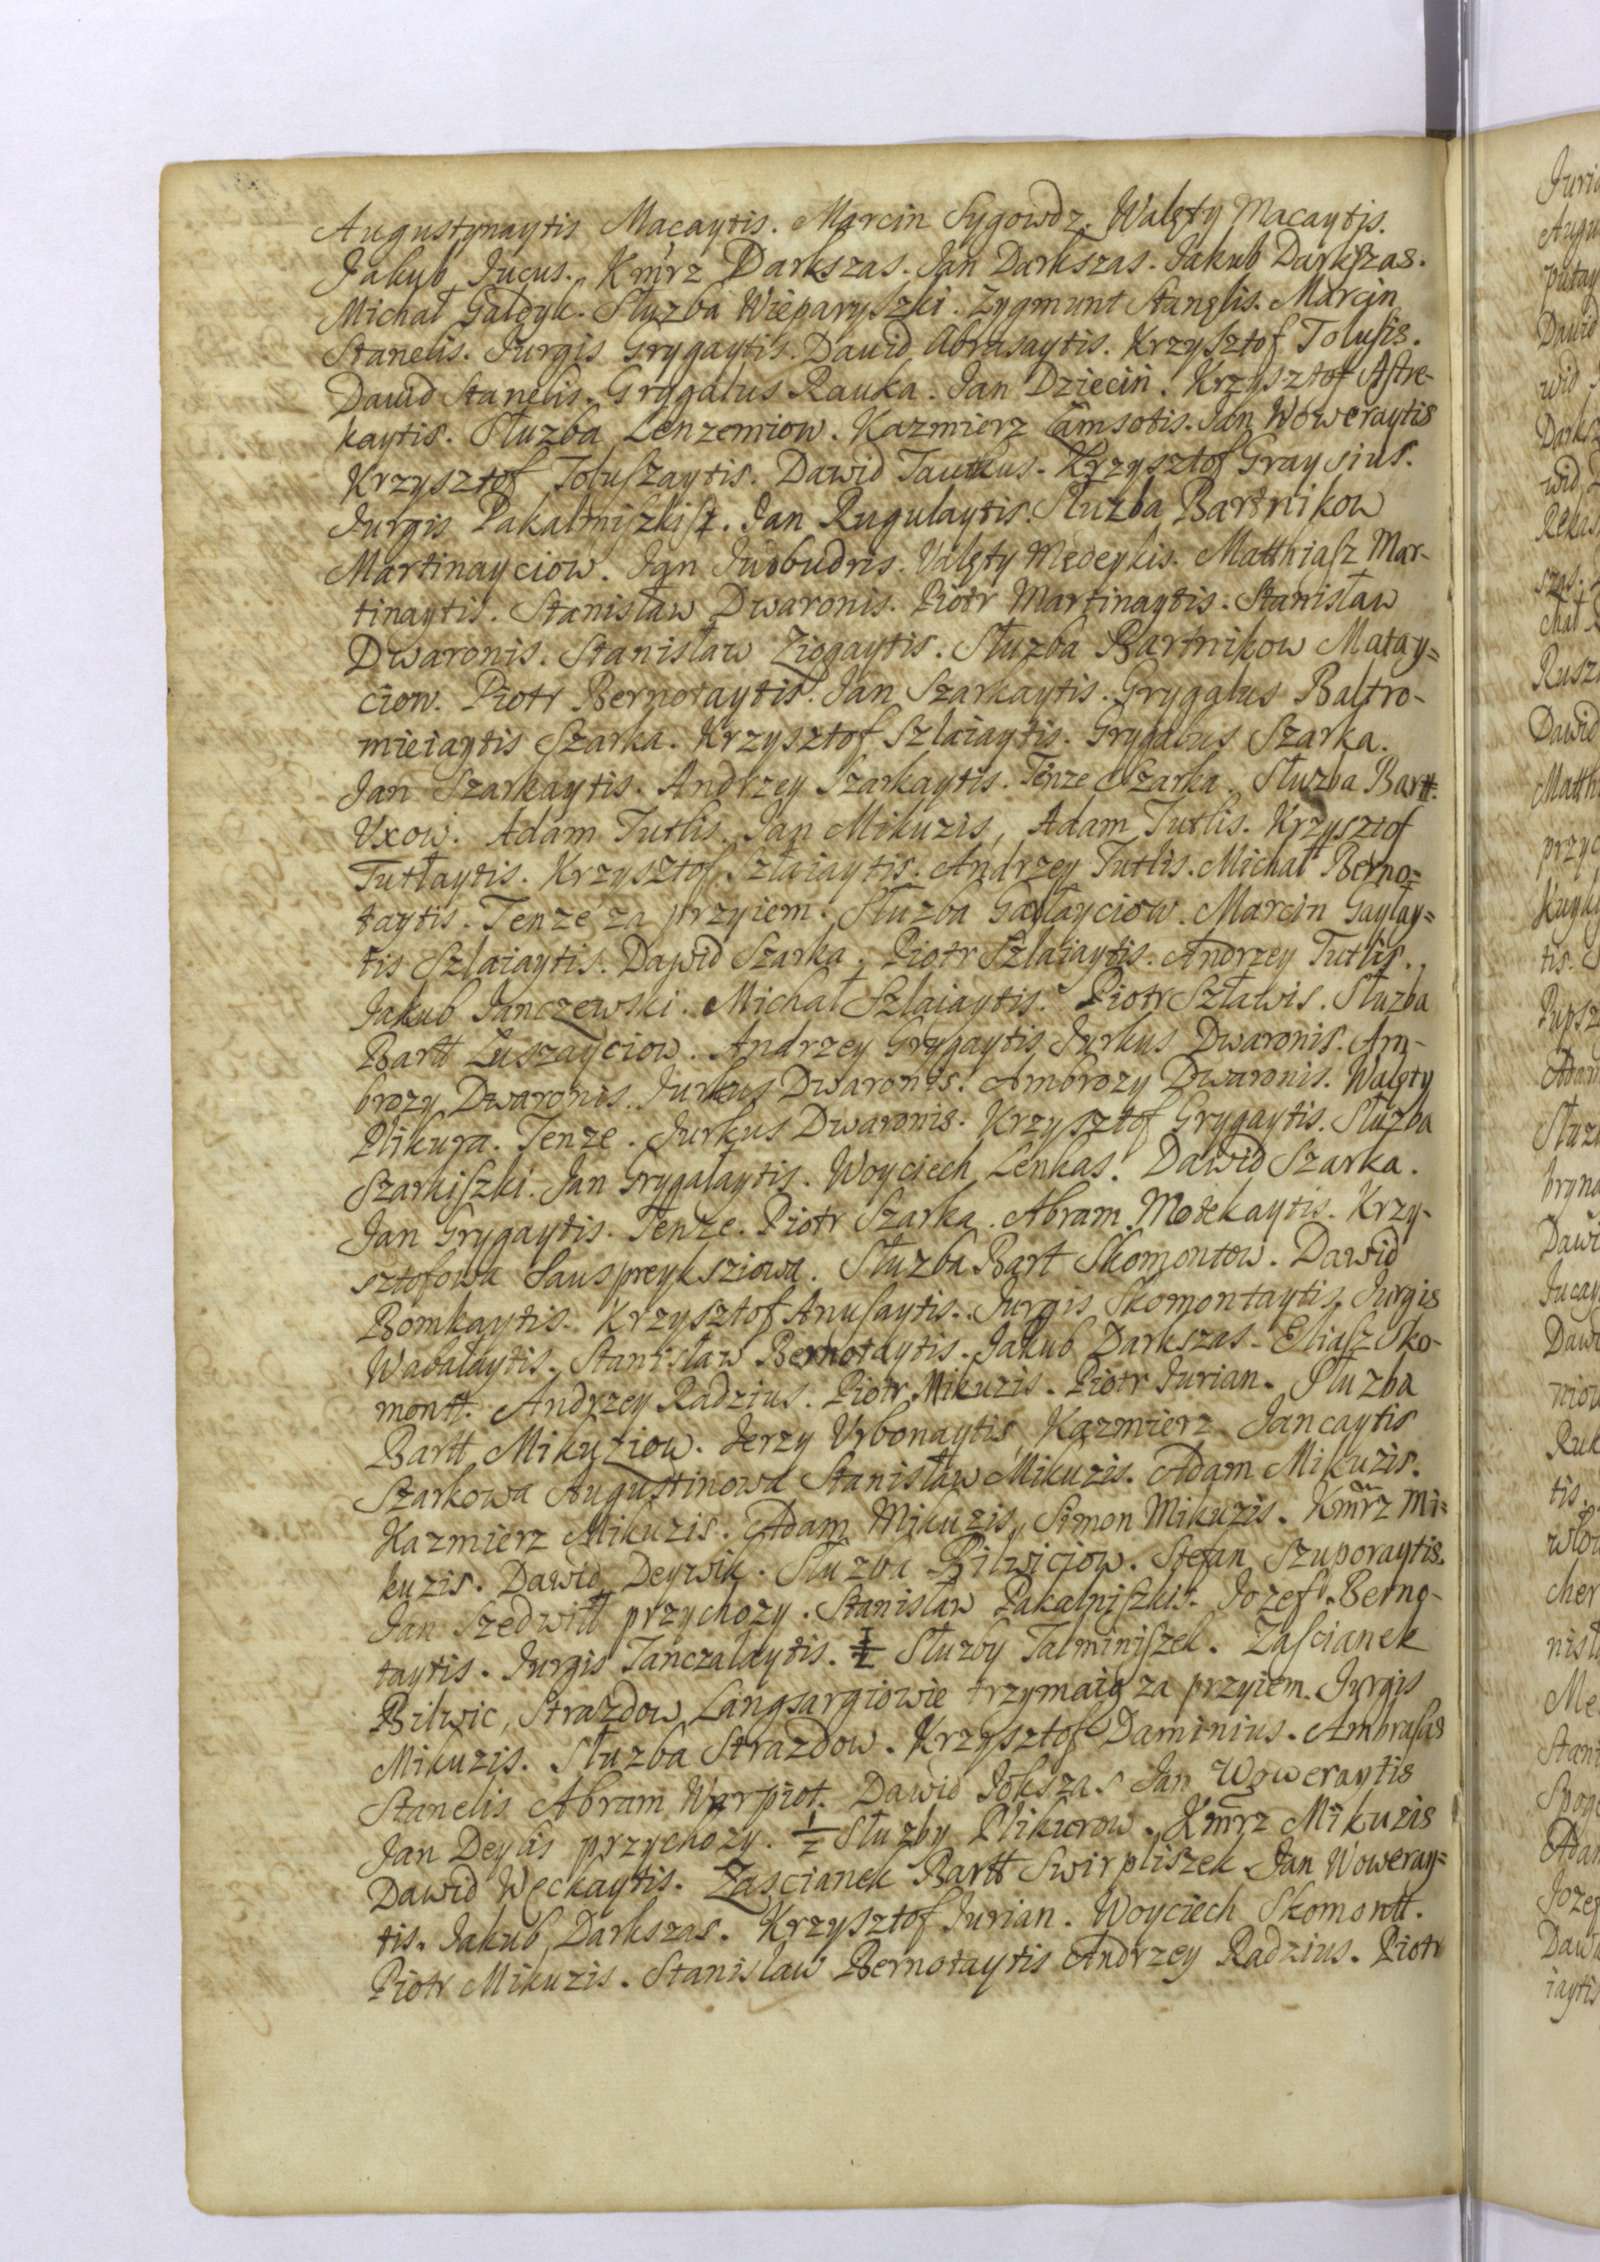 Augustynaytis Macaytis. Marcin Sygowdz. Walęty Macaytis.
Jakub Jucus. Kmrz Darkszas. Jan Darkszas. Jakub Darkszas.
Michał Galdyk. Służba Wieparyszki. Zygmunt Stanelis. Marcin
Stanelis. Jurgis Grygaytis. Dawid Abrasaytis. Krzysztof Tolusis.
Dawid Stanelis. Grygalus Rauka. Jan Dziecin. Krzysztof Astre-
kaytis. Służba Lenzemiow. Kazmierz Camsotis. Jan Woweraytis
Krzysztof Toluszaytis. Dawid Tautkus. Krzysztof Graysius.
Jurgis Pakalniszkist. Jan Rugulaytis. Służba Bartnikow
Martinayciow. Jan Judbudris. Valęty Medeykis. Matthiasz Mar-
tinaytis. Stanisław Dwaronis. Piotr Martinaytis. Stanisław
Dwaronis. Stanisław Ziogaytis. Służba Bartnikow Matay=
ciow. Piotr Bernotaytis. Jan Szarkaytis. Grygalus Baltro-
mieiaytis Szarka. Krzysztof Szlaiaytis. Grygalus Szarka.
Jan Szarkaytis. Andrzey Szarkaytis. Tenze Szarka. Służba Bartt.
Uxow. Adam Tutlis. Jan Mikuzis, Adam Tutlis. Krzysztof
Tutłaytis. Krzysztof Szłaiaytis. Andrzey Tutlis. Michał Berno=
taytis. Tenze za przyiem. Służba Gaylayciow. Marcin Gaylay=
tis Szlaiaytis. Dawid Szarka. Piotr Szlaiaytis. Andrzey Tutlis.
Jakub Janczewski. Michał Szlaiaytis. Piotr Szławis. Służba
Bartt Luszayciow. Andrzey Grygaytis Jurkus Dwaronis. Am-
brozy Dwaronis. Jurkus Dwaronis. Ambrozy Dwaronis. Walęty
Plikura. Tenze. Jurkus Dwaronis. Krzysztof Grygaytis. Służba
Szarkiszki. Jan Grygałaytis. Woyciech Lenkas. Dawid Szarka.
Jan Grygaytis. Tenze. Piotr Szarka. Abram Motekaytis. Krzy-
sztofowa Sauspreyksziowa. Służba Bart Skomontow. Dawid
Bomkaytis. Krzysztof Anusaytis. Jurgis Skomontaytis. Jurgis
Wabalaytis. Stanisław Bernotaytis. Jakub Darkszas. Eliasz Sko-
montt. Andrzey Radzius. Piotr Mikuzis. Piotr Jurian. Służba
Bartt Mikuziow. Jerzy Vrbonaytis, Kazmierz Jancaytis
Szarkowa Augustinowa Stanisław Mikuzis. Adam Mikuzis.
Kazmierz Mikuzis. Adam Mikuzis, Simon Mikuzis. Kmrz Mi=
kuzis. Dawid Deywik. Służba Bilwiciow. Stefan Szuporaytis.
Jan Szedwiłł przychozy. Stanisław Pakalniszkis. Jozef Berno-
taytis. Jurgis Tanczalaytis. 1/2 Służby Talminiszek. Zascianek
Bilwic, Strazdow Langsargiowie trzymaią za przyiem. Jurgis
Mikuzis. Służba Strazdow. Krzysztof Daminius. Ambrasas
Stanelis Abram Warpiot. Dawid Jokszas Jan Woweraytis
Jan Deylis przychozy. 1/2 Służby Plikurow. Kmrz Mikuzis
Dawid Węckaytis. Zascianek Bartt Swirpliszek Jan Woweray=
tis. Jakub Darkszas. Krzysztof Jurian. Woyciech Skomontt.
Piotr Mikuzis. Stanisław Bernotaytis Andrzey Radzius. Piotr